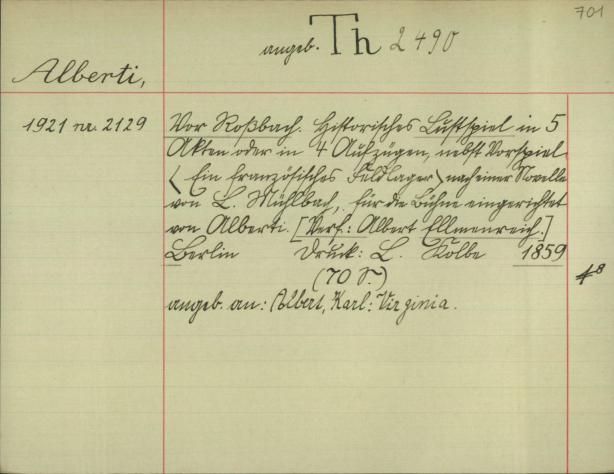 701
angeb. Th 2490
Alberti,
1921 nr. 2129
Vor Roßbach. Historisches Lustspiel in 5
Akten oder in 4 Aufzügen, nebst Vorspiel
〈Ein französisches Feldlager〉 nach einer Novelle
von L. Mühlbach, für die Bühne eingerichtet
von Alberti. [Verf.: Albert Ellmenreich.]
Berlin Druck: L. Kolbe 1859
(70 S.)
8
angeb. an: Albert, Karl: Virginia.